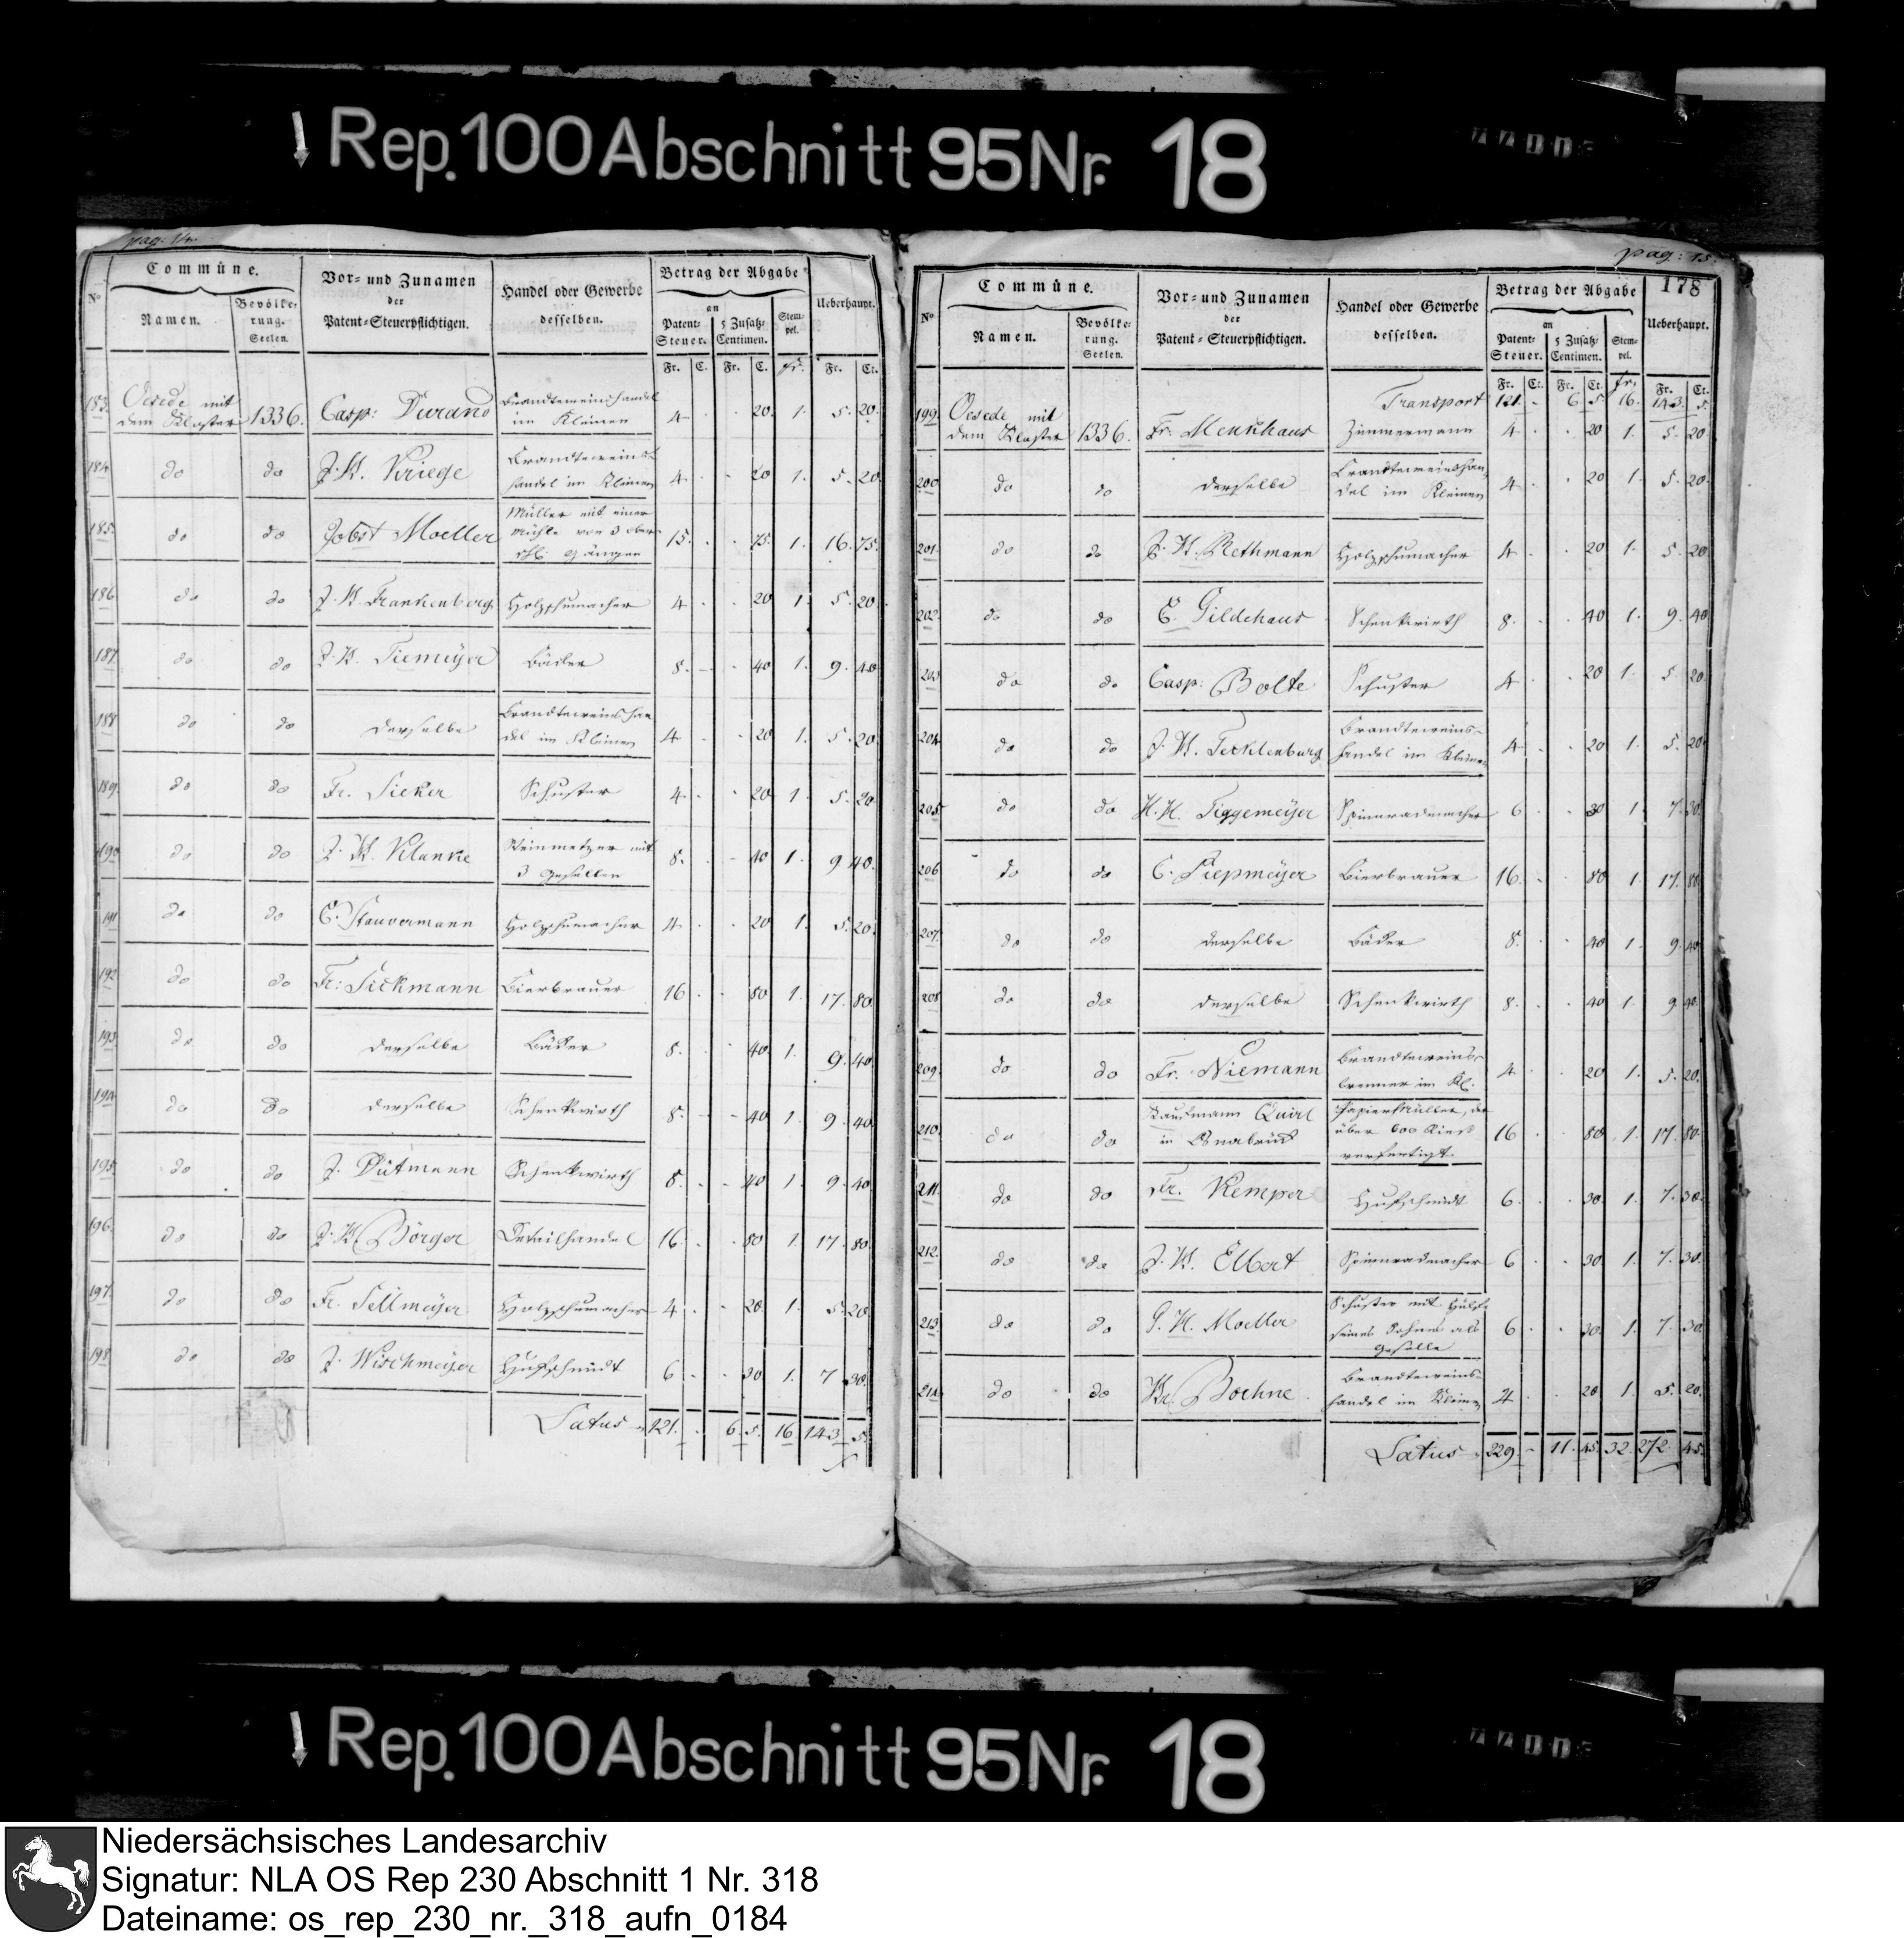 Rep. 100 Abschnitt 95 Nr. 18
pag. 14.
No Commüne. Vor- und Zunamen der Patent-Steuerpflichtigen. Handel oder Gewerbe desselben. Betrag der Abgabe Ueberhaupt.
Namen. Bevölkerung. Seelen. an Patent-Steuer. 5 Zusatz-Centimen. Stempel.
Fr. C. Fr. C. Fr. Fr. Ct.
183. Oesede mit dem Kloster 1336. Casp: Durand Brandteweinshandel im Kleinen 4 . . 20. 1. 5. 20.
184 do do J. H. Kriege Brandteweins-handel im Kleinen 4 . . 20 1. 5. 20
185. do do Jobst Moeller Müller mit einer Mühle von 3 oberschl. Gängen 15. . . 75. 1. 16. 75.
186 do do J. H. Frankenberg Holzschumacher 4 . . 20 1. 5. 20.
187. do do J. H. Tiemeÿer Bäcker 8. - . 40 1. 9. 40
188 do do derselbe Brandteweinshandel im Kleinen 4 . . 20 1. 5. 20.
189. do do Fr. Sieker Schuster 4 . . 20 1. 5. 20.
190 do do J. H. Klanke Steinmetzer mit 3 Gesellen 8. . - 40 1. 9 40.
191 do do C. Stauvermann Holzschumacher 4 . . 20 1. 5. 20.
192 do do Fr: Sickmann Bierbrauer 16 . . 80 1. 17. 80
193 do do derselbe Bäcker 8. . . 40. 1. 9. 40.
194 do do derselbe Schenkwirth 8. - - 40 1. 9. 40
195 do do J. Pütmann Schenkwirth 8. - - 40 1. 9. 40
196. do do J. H. Börger Detailhandel 16. . . 80 1. 17. 80.
197. do do Fr. Sellmeÿer Holzschumacher 4 . . 20. 1. 5. 20
198 do do J. Wischmeÿer Hufschmidt 6 . . 30 1. 7 30.
Latus 121. . 6. 5. 16. 143. 5.
pag: 15.
178
No Commüne. Vor- und Zunamen der Patent-Steuerpflichtigen. Handel oder Gewerbe desselben. Betrag der Abgabe Ueberhaupt.
Namen. Bevölkerung. Seelen. an Patent-Steuer. 5 Zusatz-Centimen. Stempel.
Fr. Ct. Fr. Ct. Fr. Fr. Ct.
Transport 121. - 6. 5 16. 143. 5.
199 Oesede mit dem Kloster 1336. Fr: Menkhaus Zimmermann 4. . . 20 1. 5. 20.
200 do do derselbe Brandteweinshandel im Kleinen 4 . . 20 1. 5. 20.
201. do do J. H. Rethmann Holzschumacher 4 . . 20 1. 5. 20
202. do do E. Gildehaus Schenkwirth 8. . . 40 1. 9. 40
203 do do Casp: Bolte Schuster 4 . . 20 1. 5. 20.
204 do do J. H. Tecklenburg Brandteweins-handel im Kleinen 4 . . 20 1. 5. 20
205 do do H. H. Tiggemeÿer Spinnradmacher 6 . . 30 1. 7. 30.
206 do do C. Piepmeÿer Bierbrauer 16. . . 80 1. 17. 80
207. do do derselbe Bäcker 8. . . 40 1. 9. 40.
208 do do derselbe Schenkwirth 8. . . 40 1. 9. 40.
209. do do Fr. Niemann Brandteweins-brenner im Kl. 4 . . 20 1. 5. 20.
210. do do Kaufmann Quirl in Osnabrück Papiermüller, der über 600 Riess verfertigt. 16 . . 80. 1. 17. 80.
211. do do Fr. Kemper Hufschmidt 6. . . 30. 1. 7. 30.
212. do do J. H. Elbert Spinnradmacher 6 . . 30. 1. 7. 30.
213. do do G. H. Moeller Schuster mit Hülfe seines Sohnes als Geselle 6 . . 30. 1. 7. 30.
214. do do Boehne Brandteweins-handel im Kleinen 4 . . 20 1. 5. 20.
Latus 229. - 11. 45. 32. 272. 45.
Rep. 100 Abschnitt 95 Nr. 18
Niedersächsisches Landesarchiv
Signatur: NLA OS Rep 230 Abschnitt 1 Nr. 318
Dateiname: os_rep_230_nr._318_aufn_0184